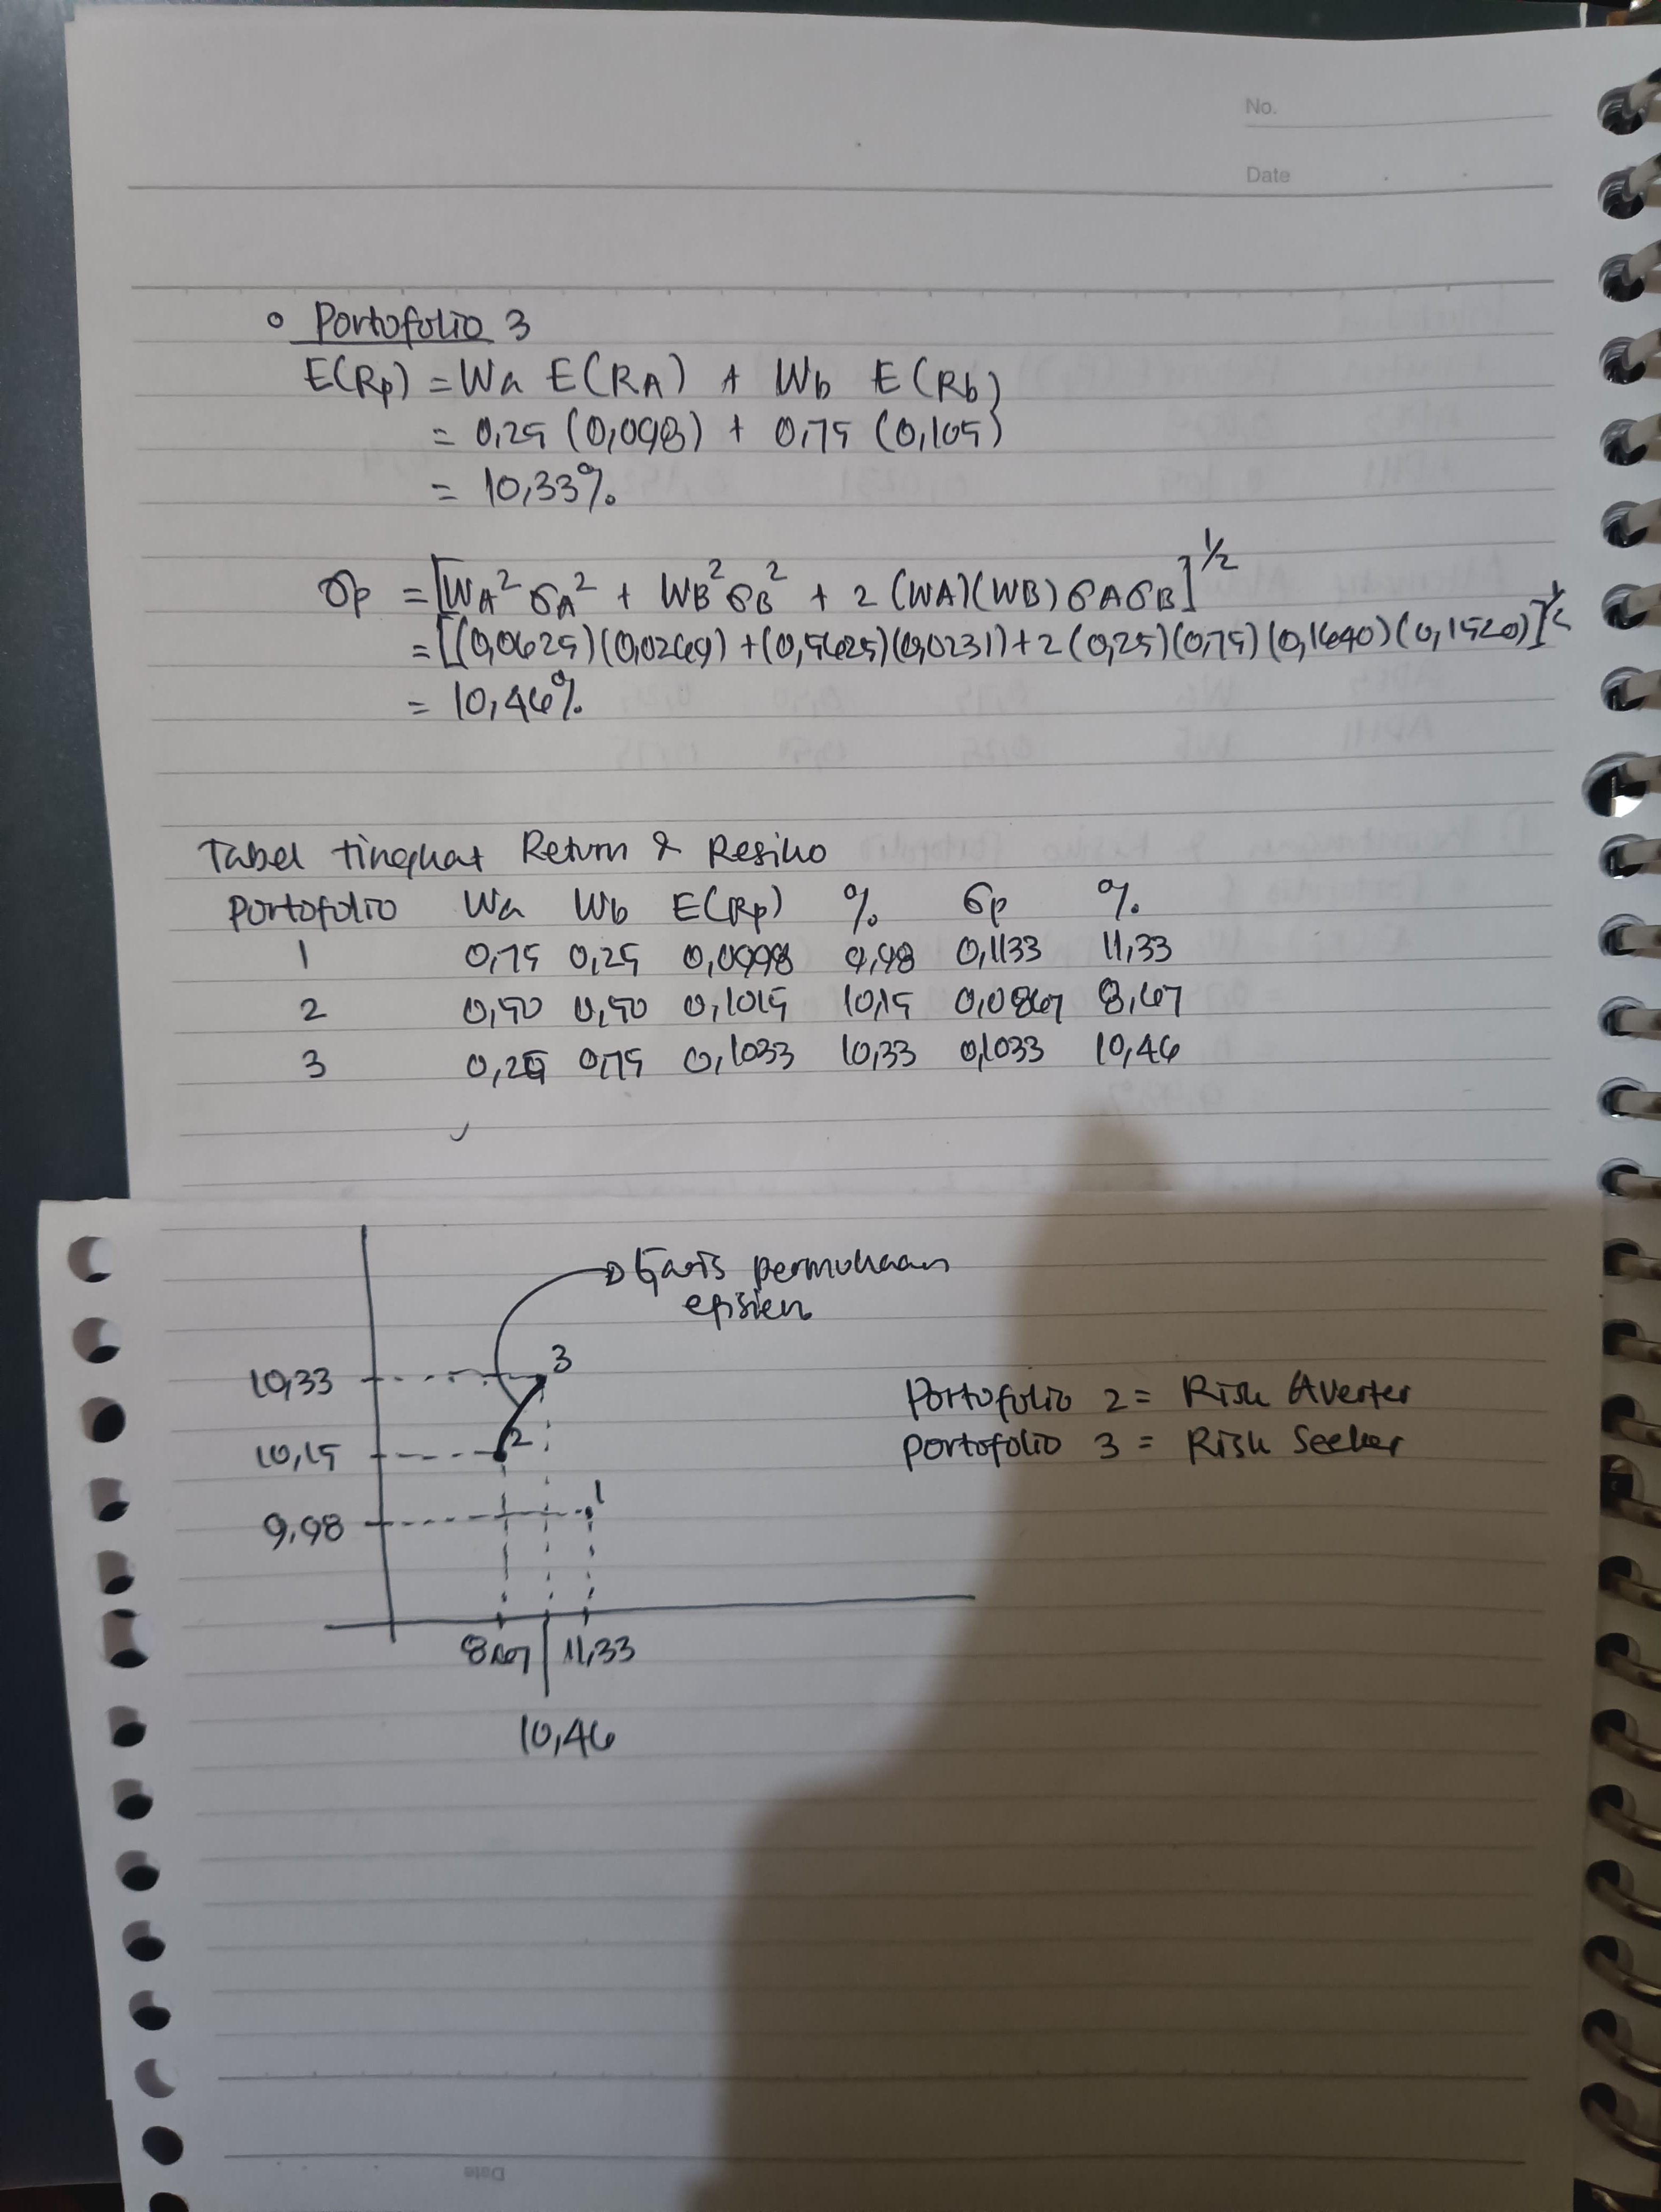 No.
Date
Portofolio 3
E(Rp) = Wa E(RA) + Wb E(Rb)
= 0,25 (0,098) + 0,75 (0,105)
= 10,33%
σp = [WA² σA² + WB² σB² + 2 (WA)(WB) σAσB]^1/2
= [(0,0625)(0,0269) + (0,5625)(0,0231) + 2 (0,25)(0,75)(0,1640)(0,1520)]^1/2
= 10,46%
Tabel tingkat Return & Resiko
Portofolio Wa Wb E(Rp) % σp %
1 0,75 0,25 0,0998 9,98 0,1133 11,33
2 0,50 0,50 0,1015 10,15 0,0867 8,67
3 0,25 0,75 0,1033 10,33 0,1033 10,46
Garis permukaan
efisien
3
10,33
Portofolio 2 = Risk Averter
2
10,15
Portofolio 3 = Risk Seeker
1
9,98
8,67 11,33
10,46
Date